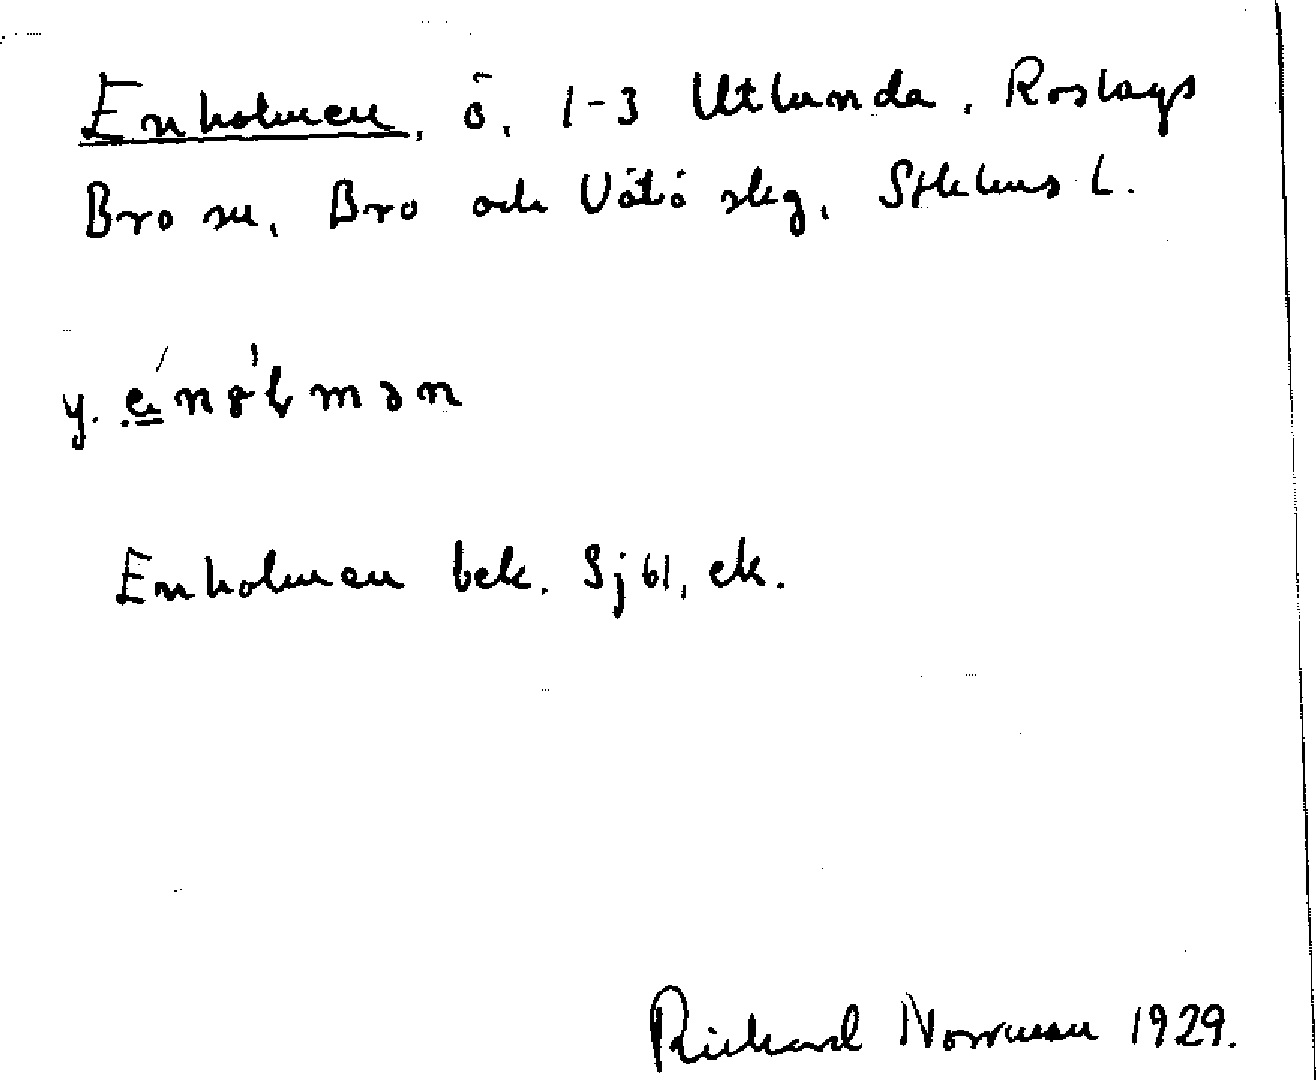 Enholmen, ö, 1-3 Utlunda, Roslags
Bro sn, Bro och Vätö skg, Sthlms L.
y. é̱nɵ̀lmən
Enholmen bek. Sjöl, ek.
Rickard Norrman 1929.